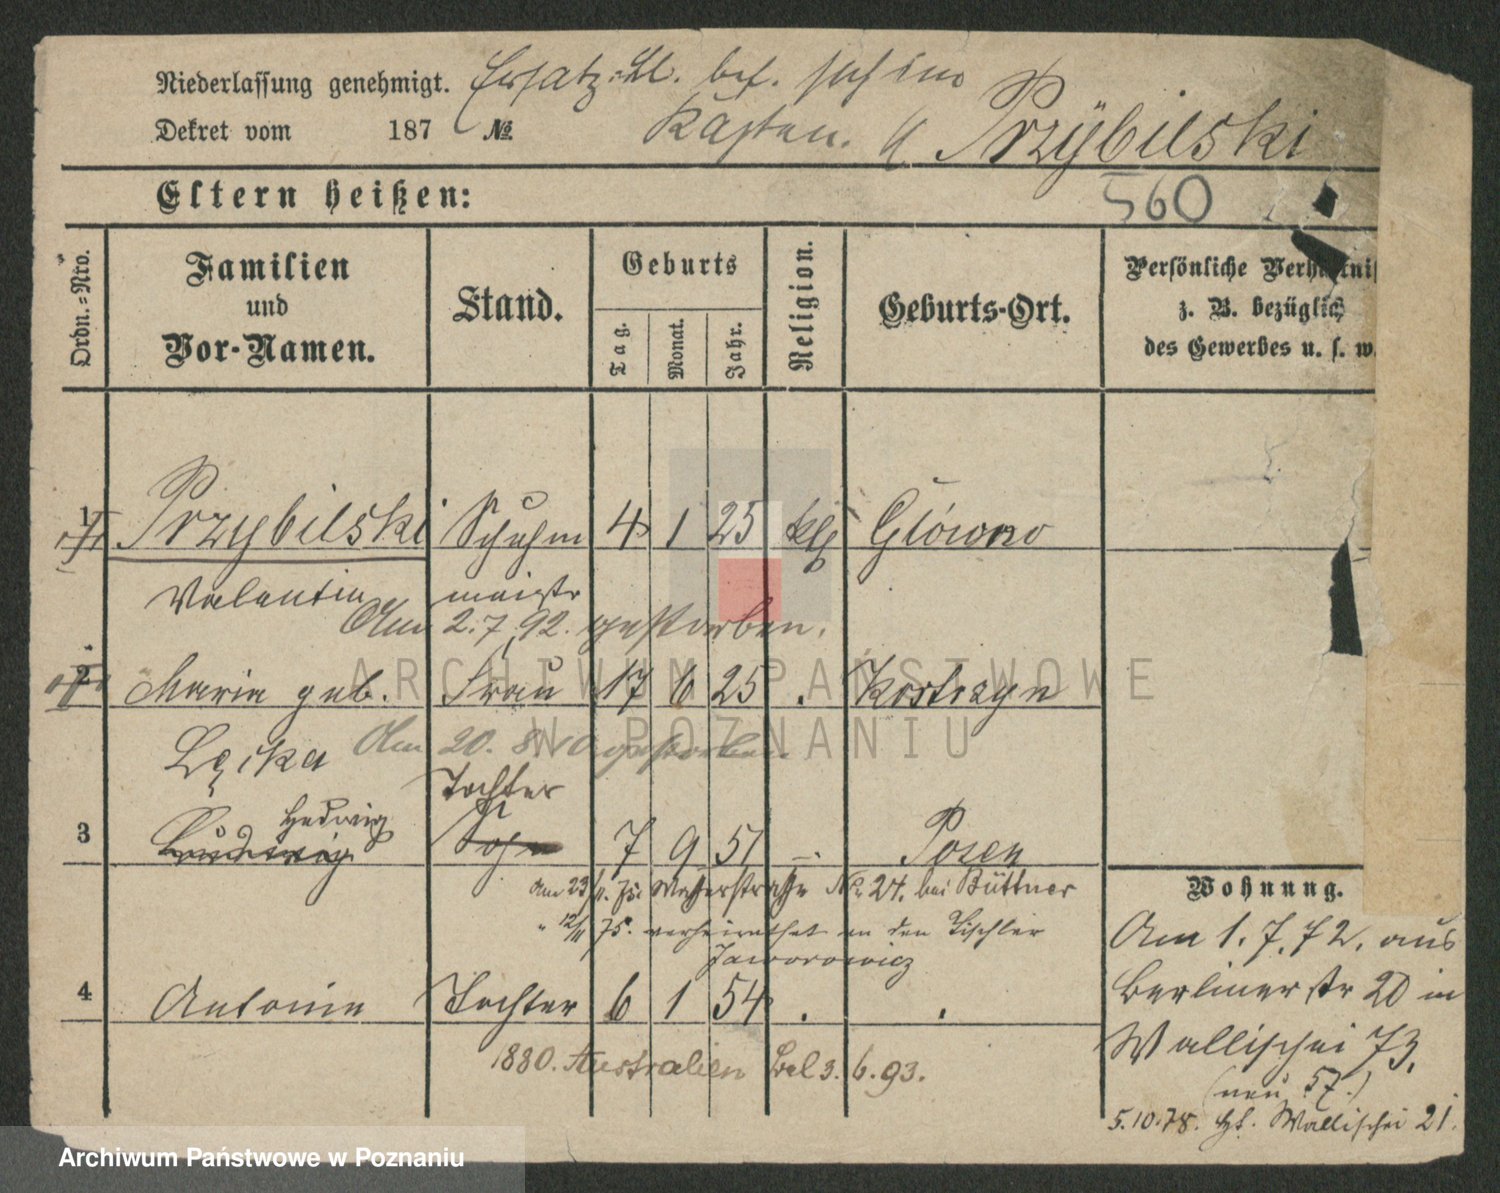 Niederlassung genehmigt. Ersatz-Bl. bef. sich im
Dekret vom 187 № Kasten.
Przÿbilski
Eltern heißen: 560
Ordn.-Nro.
Familien und Vor-Namen.
Stand.
Geburts
Tag. Monat. Jahr.
Religion.
Geburts-Ort.
Persönliche Verhältnis
z. B. bezüglich
des Gewerbes u. s. w.
1 Przybilski Schuhm 4 1 25 kth Główno
Valentin meistr
Am 2.7.92. gestorben.
2 Maria geb. Frau 17 6 25 . Kostrzyn
Am 20. gestorben.
Tochter
Hedwig
3 Ludwig Sohn 7 9 51 -. Posen
Am 23/4.75. Wasserstraße No. 24. bei Büttner
" 12/11 75. verheirathet an den Tischler
Jaworowicz
4 Antonie Tochter 6 1 54 . .
1880. Australien Bel 3.6.93.
Wohnung.
Am 1.7.72. aus
Berliner str 20 in
Wallischei 73.
(neu 57.)
5.10.78. Wallischei 21.
ARCHIWUM PAŃSTWOWE
W POZNANIU
Archiwum Państwowe w Poznaniu